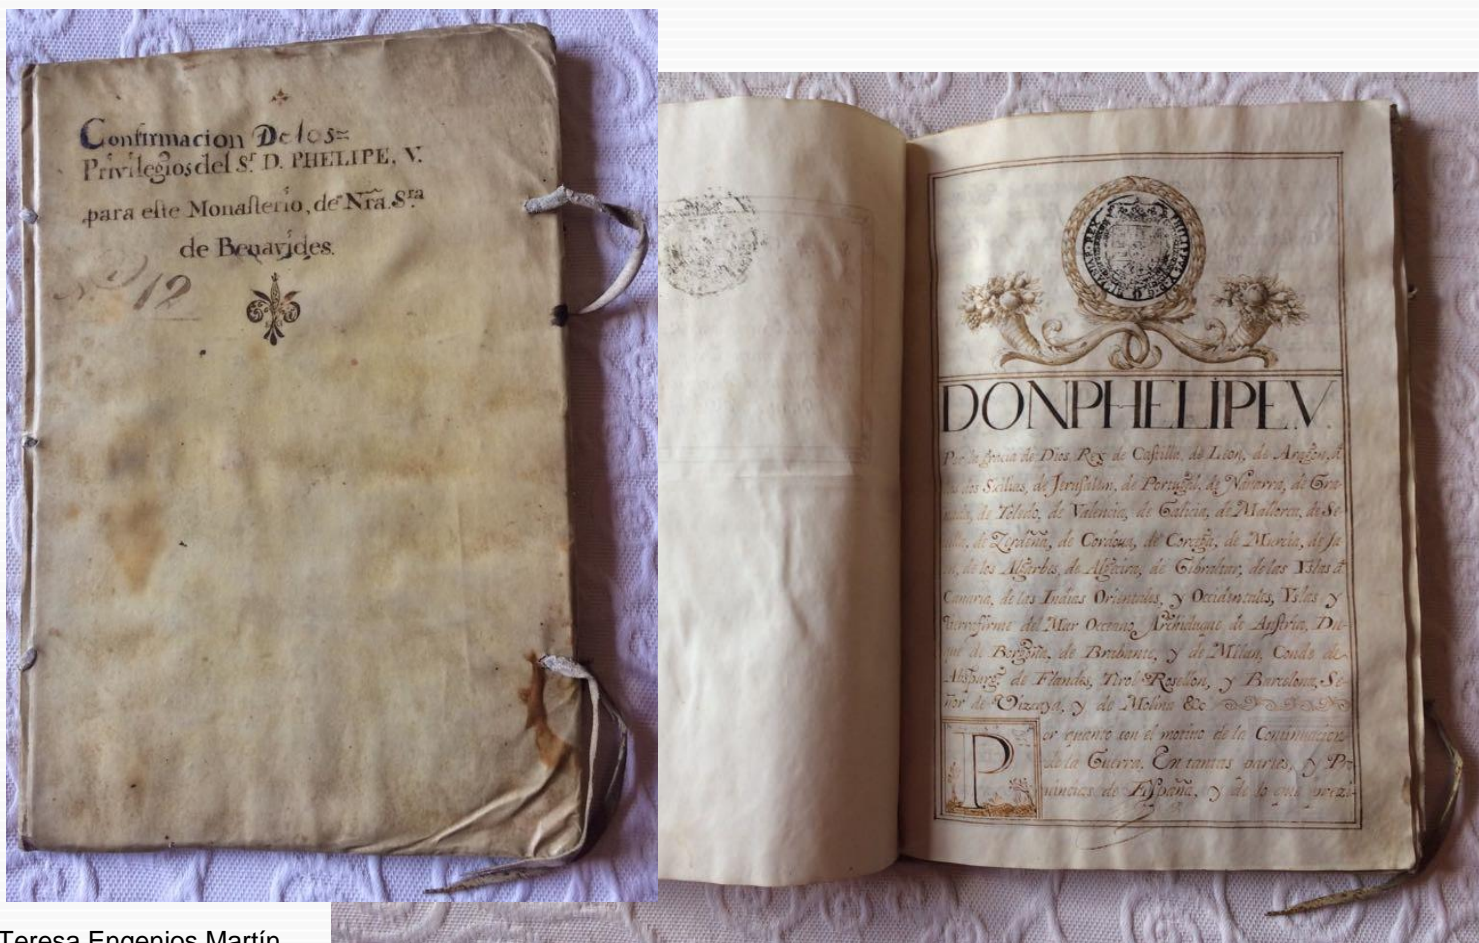 Confirmacion De los=
Privilegios del S.r D. PHELIPE, V.
para este Monasterio, de Nrã. S.ra
de Benavides.
12
DON PHELIPE.V.
Por la gracia de Dios, Rey de Castilla, de Leon, de Aragon, d
las dos Sicilias, de Jerusalen, de Portugal, de Navarra, de Gra-
nada, de Toledo, de Valencia, de Galicia, de Mallorca, de Se-
villa, de Zerdeña, de Cordoua, de Corzega, de Murcia, de Ja
en, de los Algarbes, de Algecira, de Gibraltar, de las Yslas d
Canaria, de las Indias Orientales, y Occidentales, Yslas, y
tierrafirme del Mar Occeano, Archiduque de Austria, Du-
que de Borgoña, de Brabante, y de Milan, Conde de
Abspurg, de Flandes, Tirol, Rosellon, y Barcelona, Se-
ñor de Vizcaya, y de Molina &c
Por quanto con el motivo de la Continuacion
de la Guerra, En tantas partes, y Pro
uincias de España, y de lo que prezi-
Teresa Engenios Martín